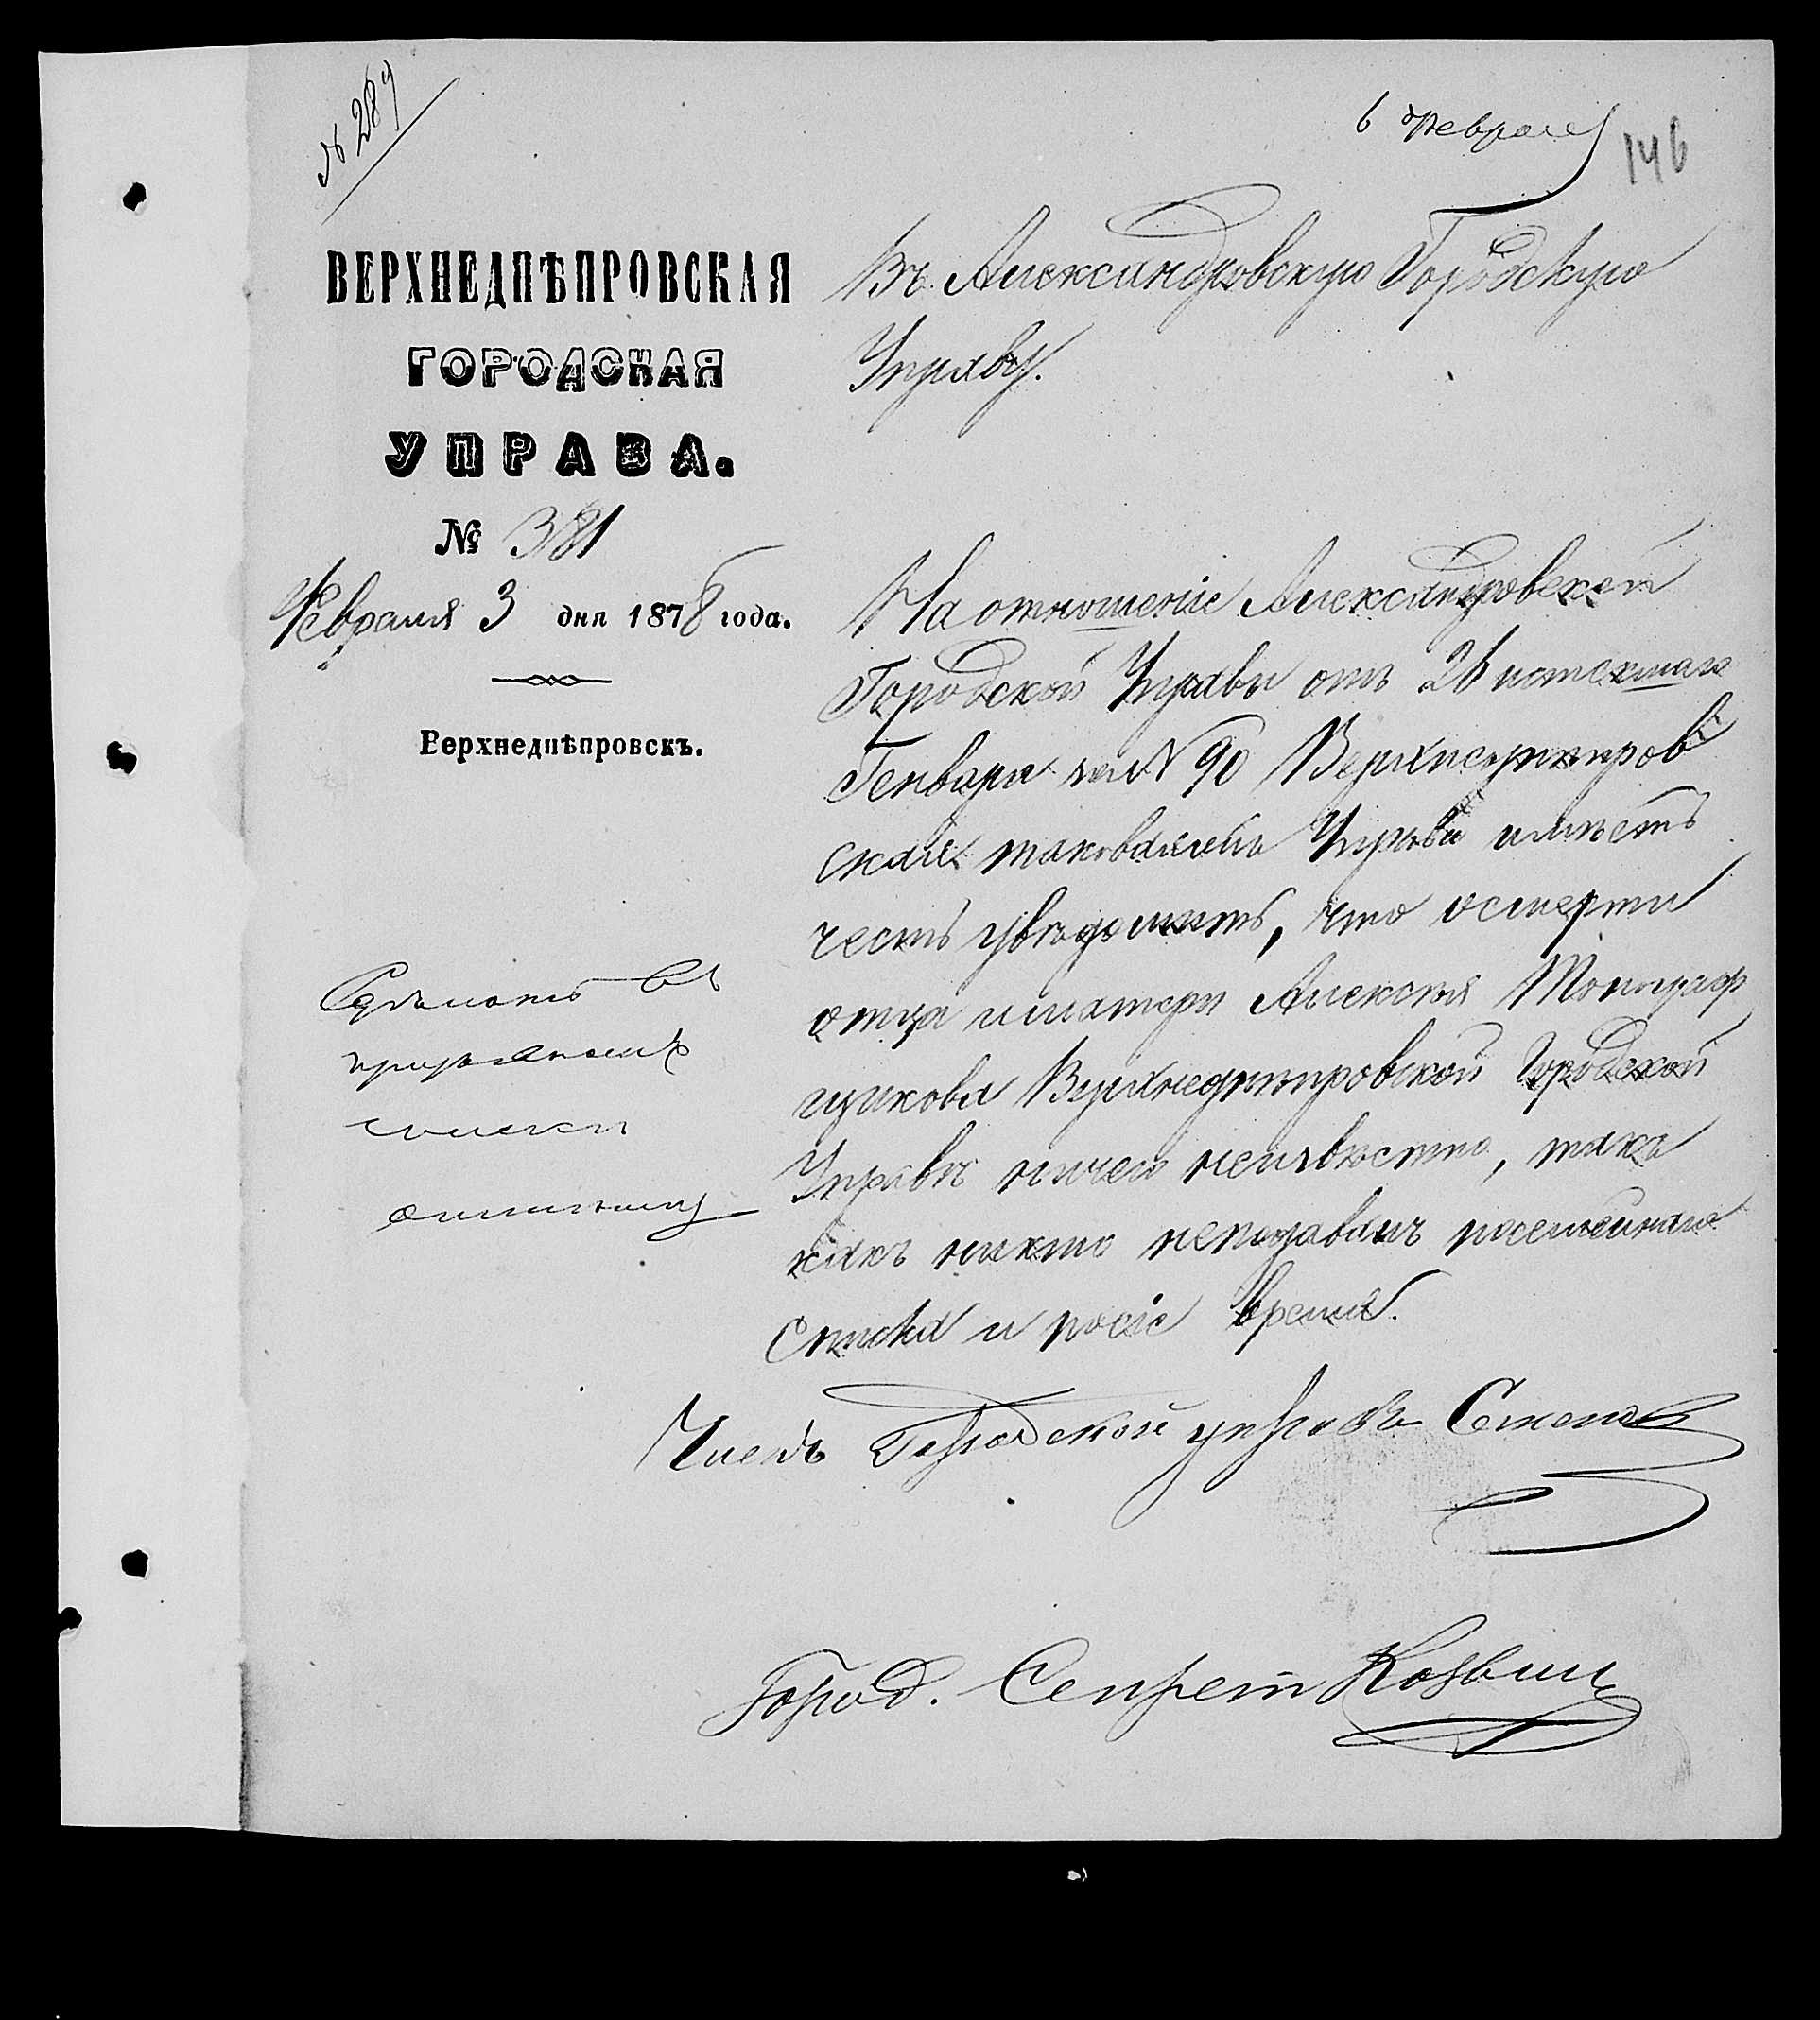 № 289
6 Февраля
146
ВЕРХНЕДНѢПРОВСКАЯ
ГОРОДСКАЯ
УПРАВА.
№ 381
Февраля 3 дня 1878 года.
Верхнеднѣпровскъ.
Въ Александровскую Городскую
Управу.
На отношеніе Александровской
Городской Управы отъ 26 истекшаго
Генваря за № 90 Верхнеднѣпров
ская таковая Управа имѣетъ
честь увѣдомить, что осмерти
отца иматери Алексѣя
Верхнеднѣпровской Городской
Управѣ ничего неизвѣстно, такъ
какъ никто неподавалъ посемейнаго
списка и посіе время.
Сдѣлать въ
призывномъ
списки
отмѣтку
Членъ Городской управы Семенов
Город. Секрет